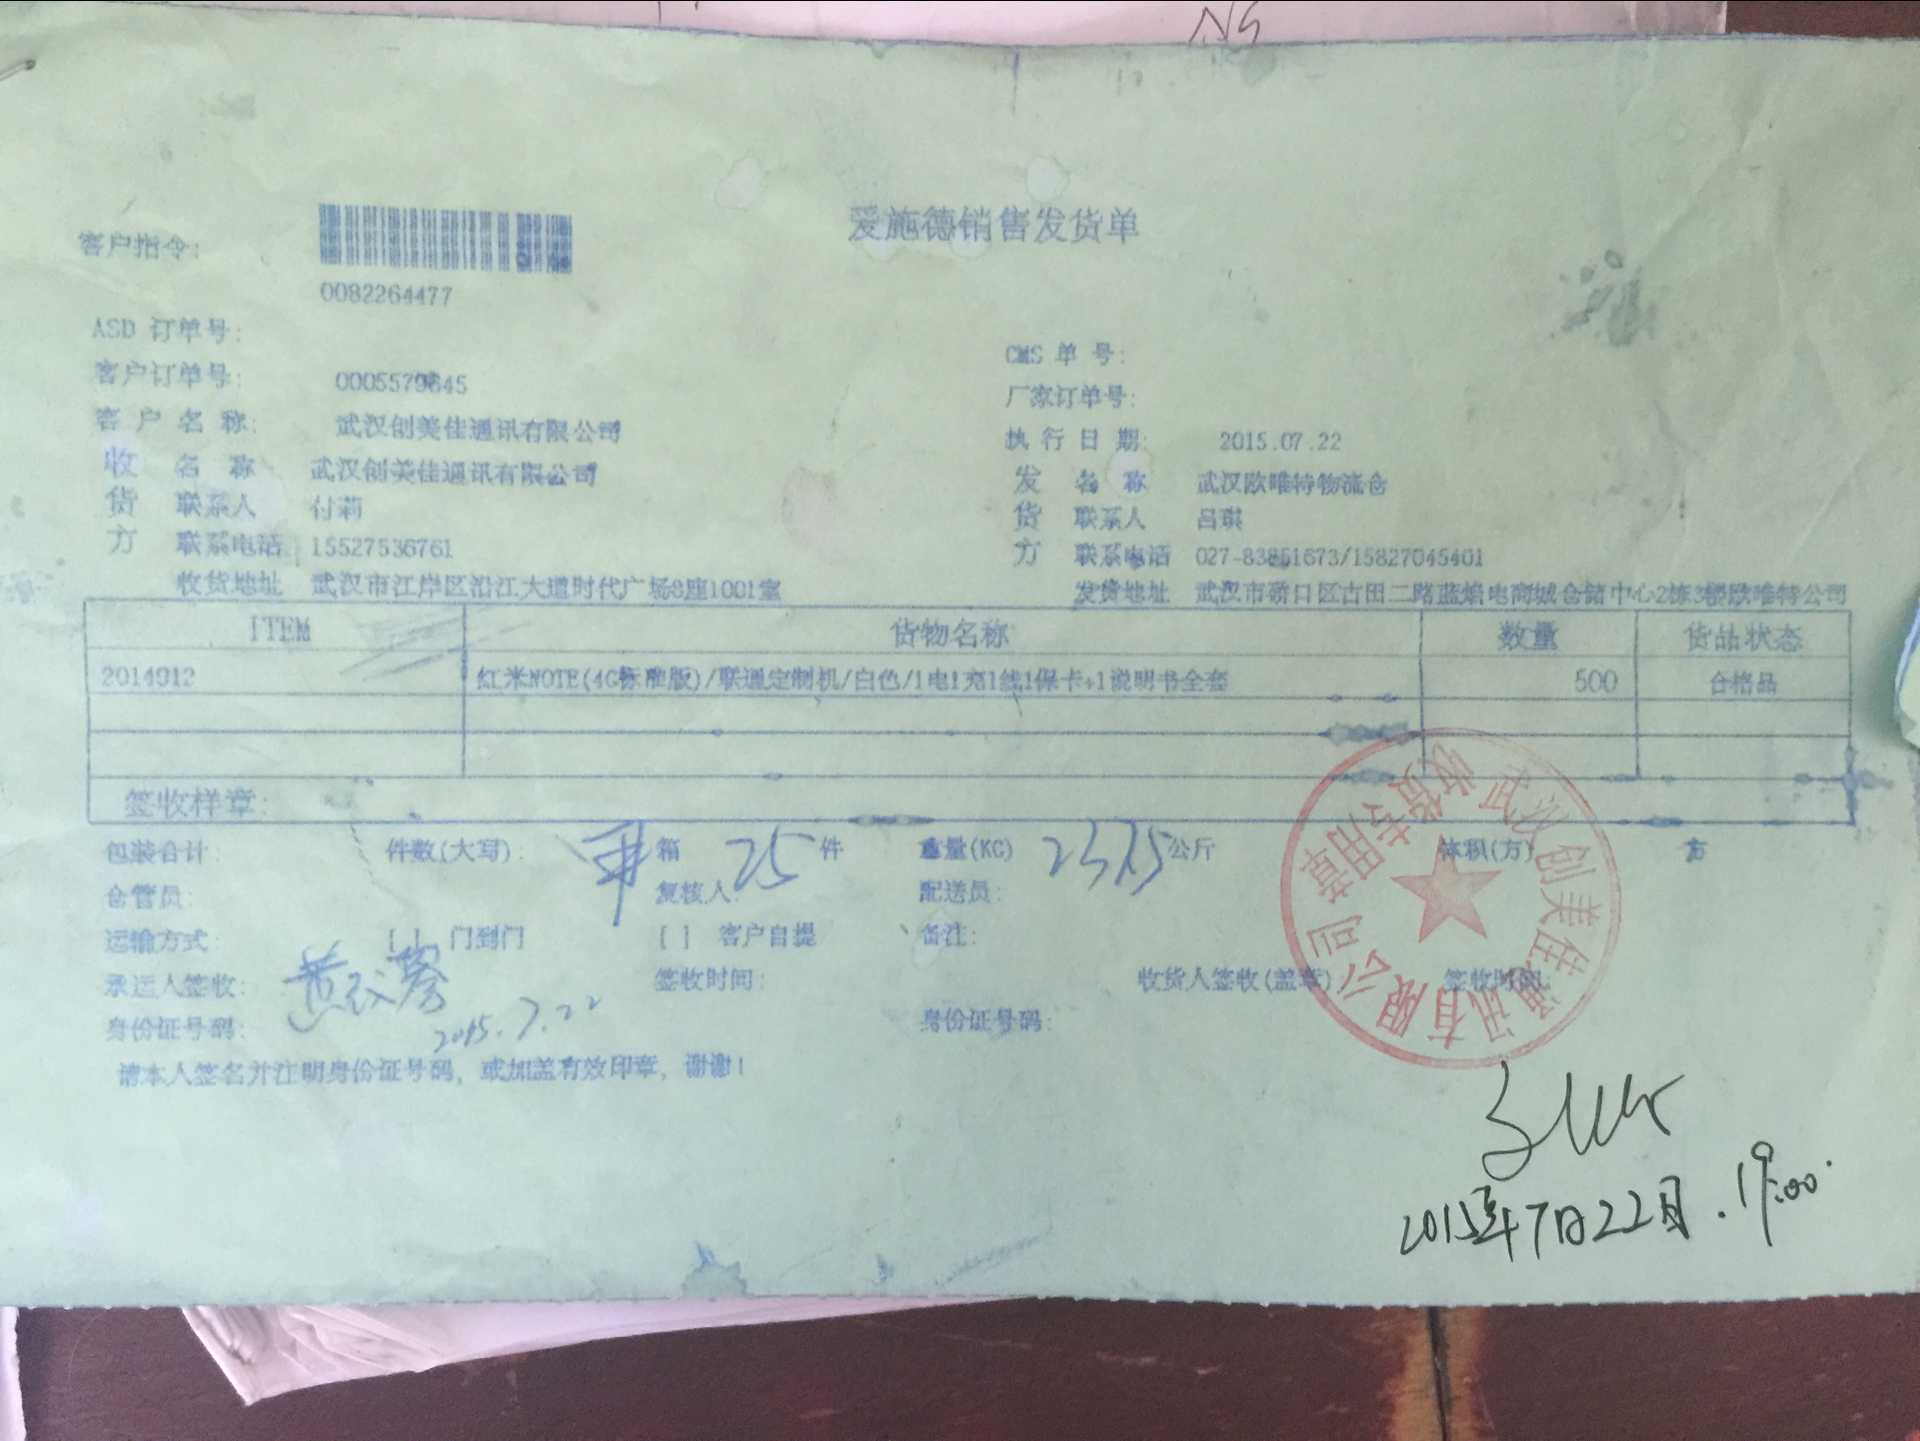 爱施德销售发货单
客户指令:
0082264477
ASD 订单号:
CMS 单 号:
客户订单号: 0005579645
厂家订单号:
客 户 名 称: 武汉创美佳通讯有限公司
执 行 日 期: 2015.07.22
收 名 称 武汉创美佳通讯有限公司
发 名 称 武汉欧唯特物流仓
货 联系人 付莉
货 联系人 吕琪
方 联系电话 15527536761
方 联系电话 027-83851673/15827045401
收货地址 武汉市江岸区沿江大道时代广场8座1001室
发货地址 武汉市硚口区古田二路蓝焰电商城仓储中心2栋3楼欧唯特公司
ITEM 货物名称 数量 货品状态
2014912 红米NOTE(4G标准版)/联通定制机/白色/1电1充1线1保卡+1说明书全套 500 合格品
签收样章:
包装合计: 件数(大写): 箱 25 件 重量(KG) 237.5 公斤 体积(方) 方
仓管员: 复核人: 配送员:
运输方式: [ ] 门到门 [ ] 客户自提 备注:
承运人签收: 签收时间: 收货人签收(盖章) 签收时间:
身份证号码: 2015.7.22 身份证号码:
请本人签名并注明身份证号码，或加盖有效印章，谢谢！
武汉创美佳通讯有限公司
收货专用章
2015年7月22日.19:00